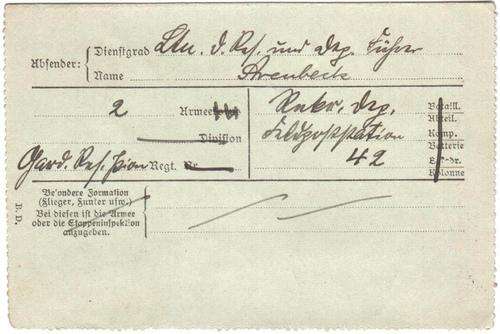 Absender: Dienstgrad Ltn. d. Res. und Dep. Führer
Name Arenbeck
2 Armee
Division
Gard. Res. Pion Regt. Nr.
Rekr. Dep.
Feldpoststation
42
Bataill.
Abteil.
Komp.
Batterie
Kolonne
Be'ondere Formation
(Flieger, Funker usw.)
Bei diesen ist die Armee
oder die Etappeninspektion
anzugeben.
B. D.